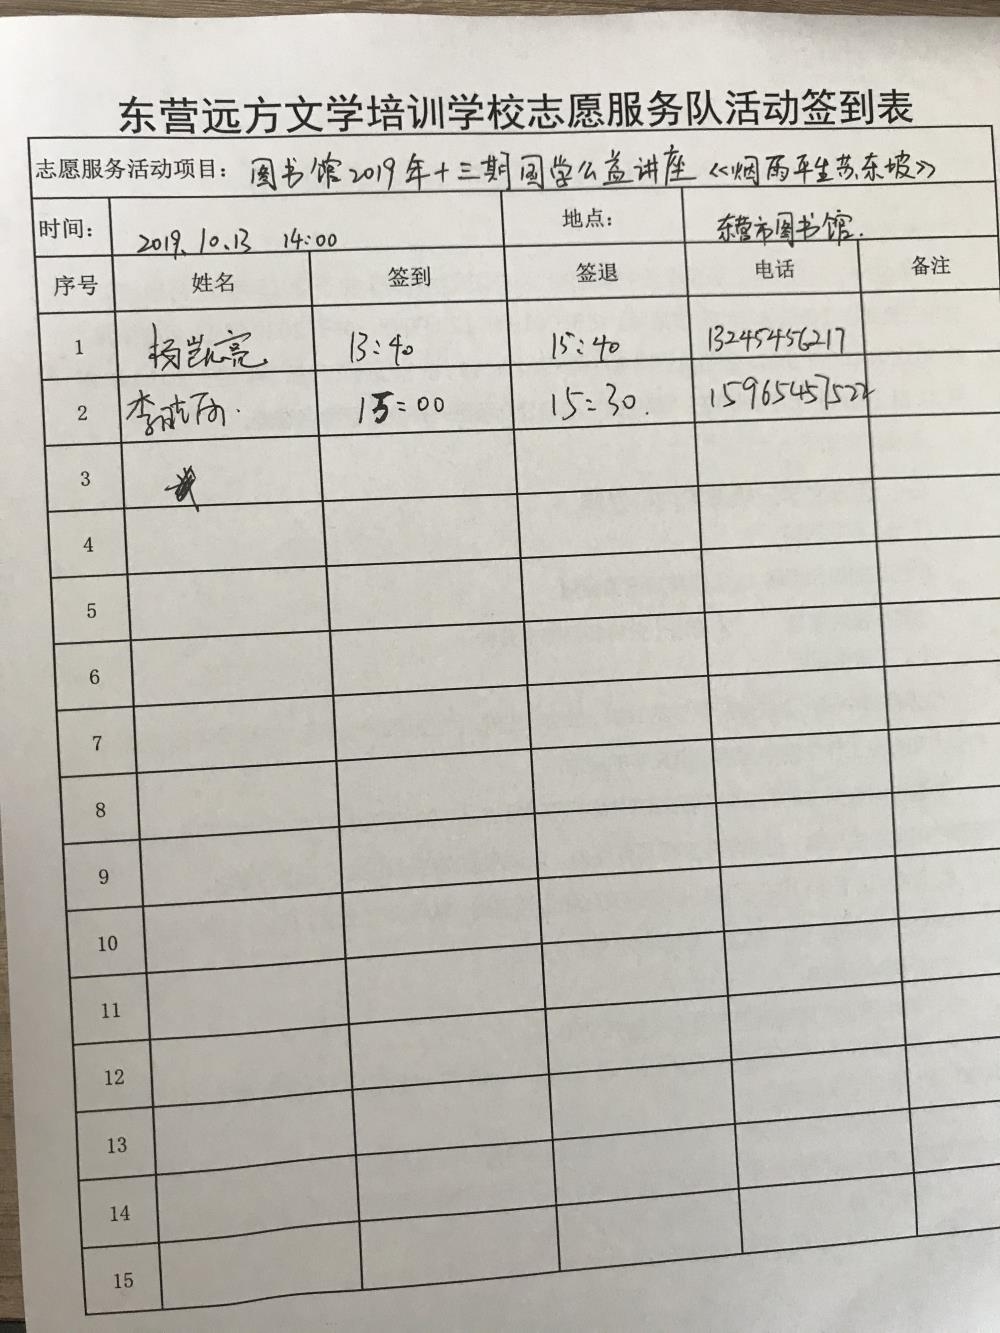 东营远方文学培训学校志愿服务队活动签到表
志愿服务活动项目： 图书馆2019年十三期国学公益讲座《烟雨平生苏东坡》
时间： 2019.10.13 14:00 地点： 东营市图书馆.
序号 姓名 签到 签退 电话 备注
1 杨凯亮 13:40 15:40 13245456217
2 李 15:00 15:30. 15965457522
3
4
5
6
7
8
9
10
11
12
13
14
15